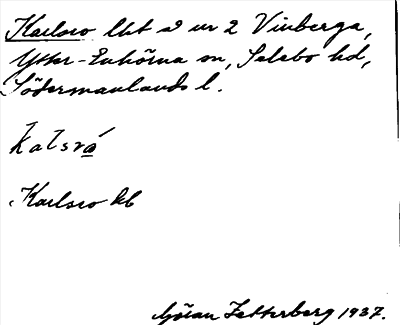 Karlsro lht å nr 2 Vinberga,
Ytter-Enhörna sn, Selebo hd,
Södermanlands l.
Kalsrá
Karlsro kb
Göran Zetterberg 1937.